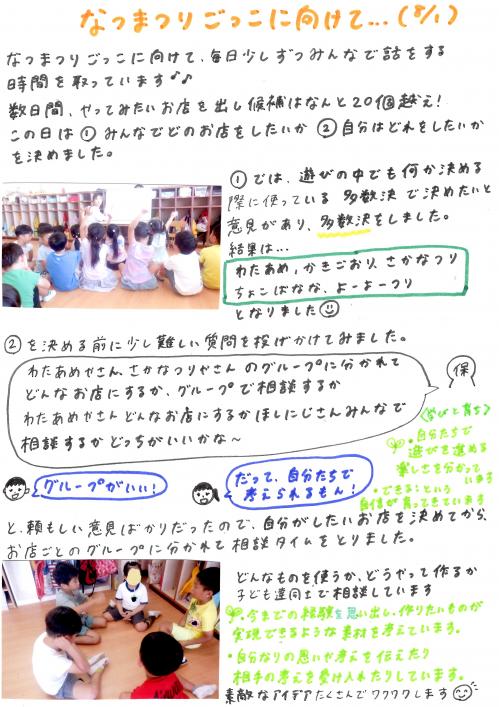 なつまつりごっこに向けて…(8/1)
なつまつりごっこに向けて、毎日少しずつみんなで話をする
時間を取っています♪♪
数日間、やってみたいお店を出し候補はなんと20個越え!
この日は①みんなでどのお店をしたいか ②自分はどれをしたいか
を決めました。
①では、遊びの中でも何か決める
際に使っている 多数決 で決めたいと
意見があり、多数決をしました。
結果は…
わたあめ、かきごおり、さかなつり
ちょこばなな、よーよーつり
となりました
②を決める前に少し難しい質問を投げかけてみました。
わたあめやさん、さかなつりやさん のグループに分かれて
どんなお店にするか、グループで相談するか
わたあめやさん どんなお店にするか ほしにじさんみんなで
相談するか どっちがいいかな~
保
グループがいい!
だって、自分たちで
考えられるもん!
〈学びと育ち〉
・自分たちで
遊びを進める
楽しさを分かって
います
・できる!という
自信が育ってきています
と、頼もしい意見ばかりだったので、自分がしたいお店を決めてから、
お店ごとのグループに分かれて相談タイムをとりました。
どんなものを使うか、どうやって作るか
子ども達同士で相談しています
・今までの経験を思い出し、作りたいものが
実現できるような素材を考えています。
・自分なりの思いや考えを伝えたり
相手の考えを受け入れたりしています。
素敵なアイデアたくさんでワクワクします